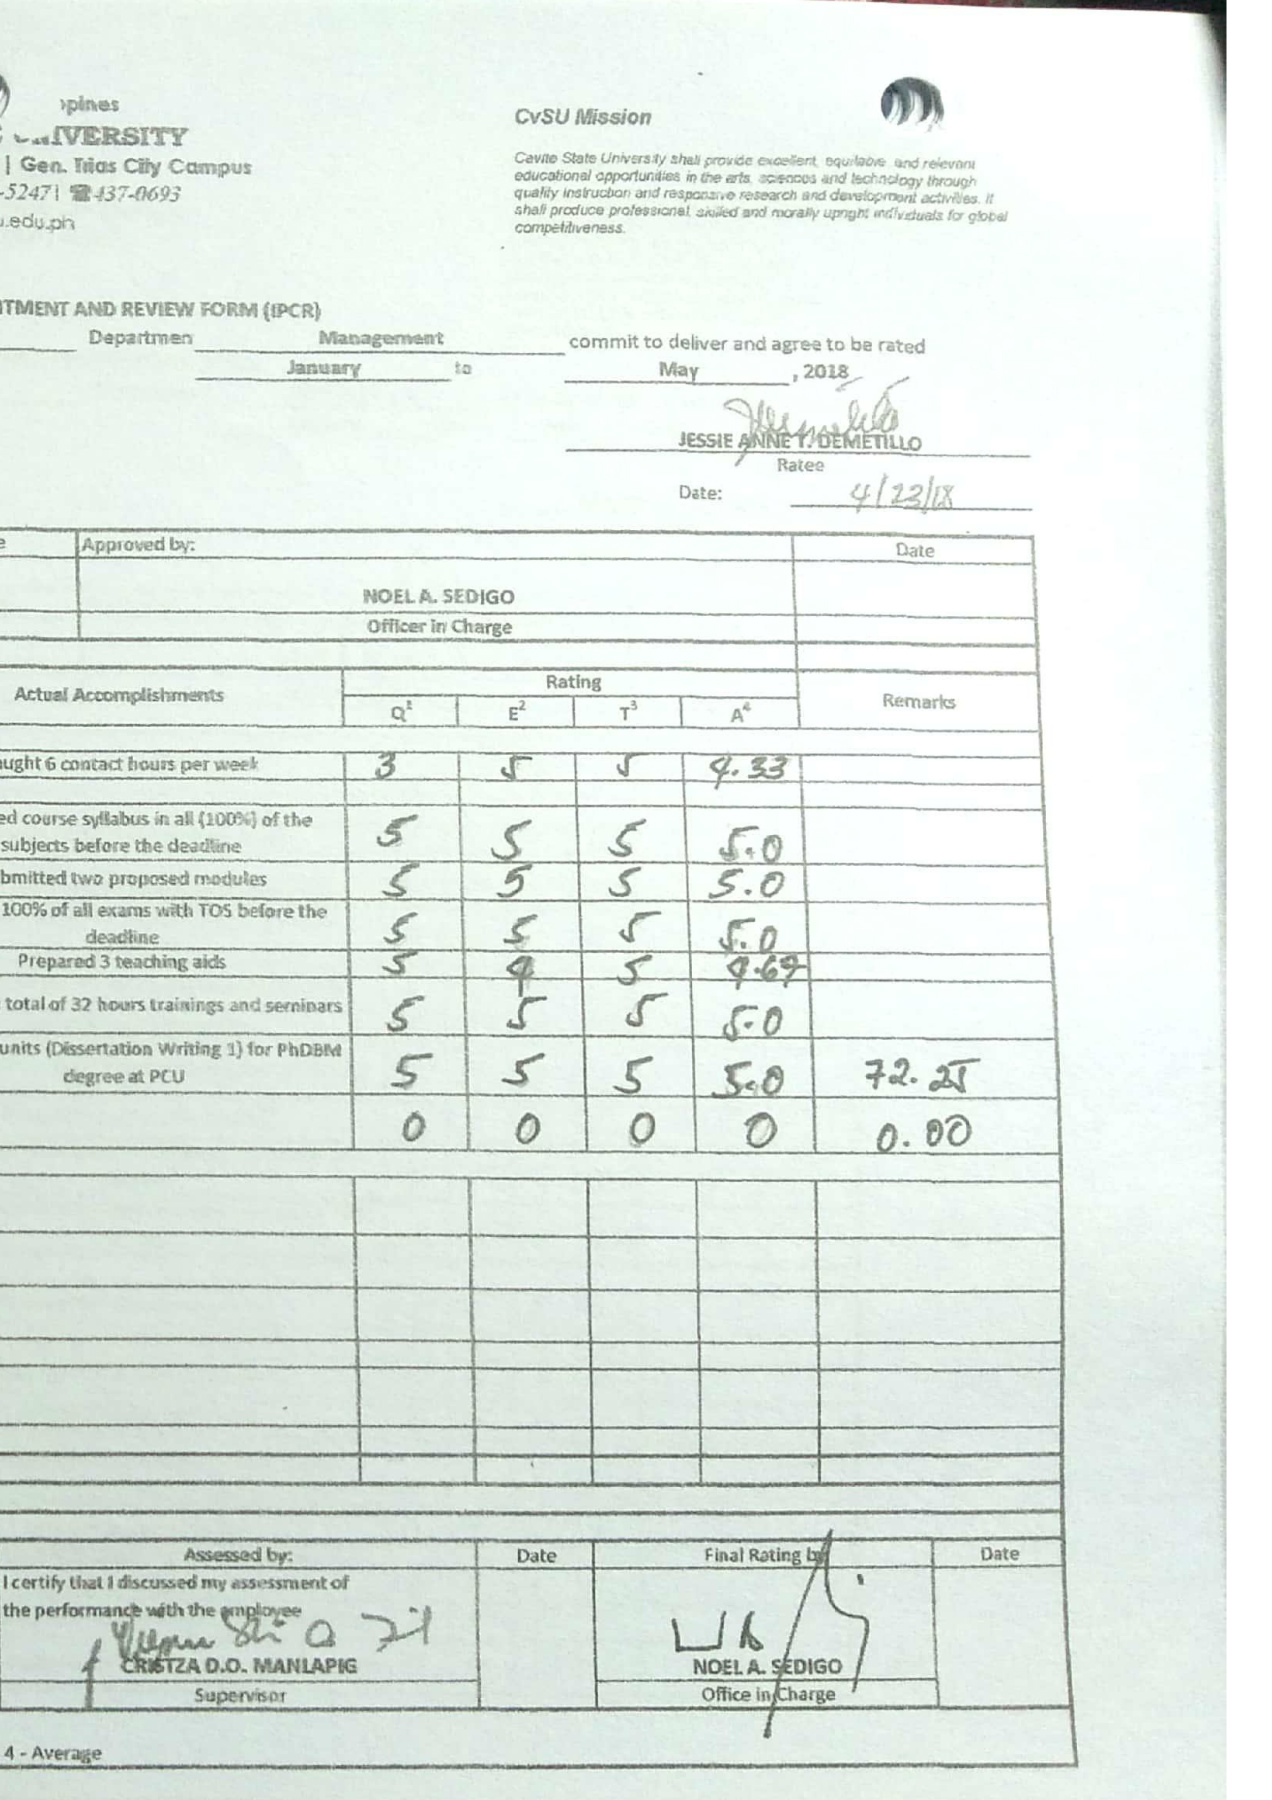 pines
IVERSITY
| Gen. Trias City Campus
-5247| ☎437-0693
.edu.ph
CvSU Mission
Cavite State University shall provide excellent, equitable and relevant
educational opportunities in the arts, sciences and technology through
quality instruction and responsive research and development activities. It
shall produce professional, skilled and morally upright individuals for global
competitiveness.
TMENT AND REVIEW FORM (IPCR)
Departmen Management commit to deliver and agree to be rated
January to May , 2018
JESSIE ANNE T. DEMETILLO
Ratee
Date: 4/23/18
e Approved by: Date
NOEL A. SEDIGO
Officer in Charge
Actual Accomplishments Rating Remarks
Q¹ E² T³ A⁴
ught 6 contact hours per week 3 5 5 4.33
ed course syllabus in all (100%) of the
subjects before the deadline 5 5 5 5.0
bmitted two proposed modules 5 5 5 5.0
100% of all exams with TOS before the
deadline 5 5 5 5.0
Prepared 3 teaching aids 5 4 5 4.67
total of 32 hours trainings and seminars 5 5 5 5.0
units (Dissertation Writing 1) for PhDBM
degree at PCU 5 5 5 5.0 72.25
0 0 0 0 0.00
Assessed by: Date Final Rating by Date
I certify that I discussed my assessment of
the performance with the employee
CRISTZA D.O. MANLAPIG NOEL A. SEDIGO
Supervisor Office in Charge
4 - Average